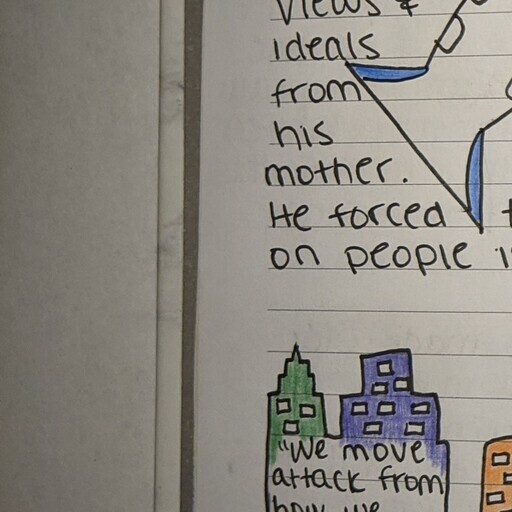 views &
ideals
from
his
mother.
He forced
on people
"We move
attack from
how we